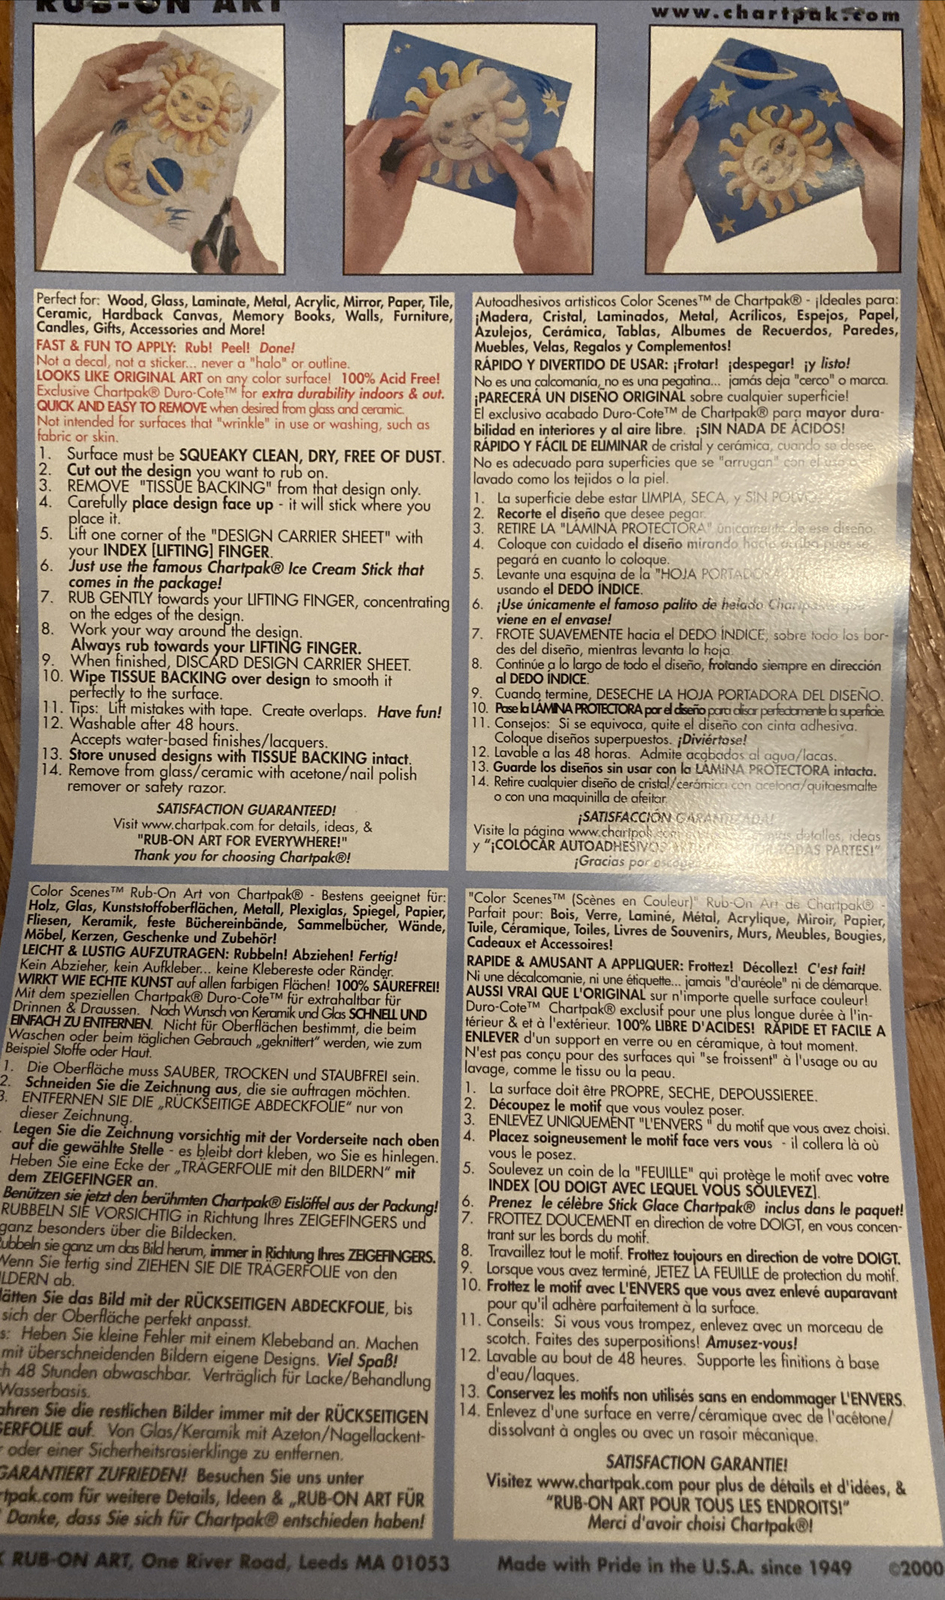 RUB-ON ART
www.chartpak.com
Perfect for: Wood, Glass, Laminate, Metal, Acrylic, Mirror, Paper, Tile,
Ceramic, Hardback Canvas, Memory Books, Walls, Furniture,
Candles, Gifts, Accessories and More!
FAST & FUN TO APPLY: Rub! Peel! Done!
Not a decal, not a sticker... never a "halo" or outline.
LOOKS LIKE ORIGINAL ART on any color surface! 100% Acid Free!
Exclusive Chartpak® Duro-Cote™ for extra durability indoors & out.
QUICK AND EASY TO REMOVE when desired from glass and ceramic.
Not intended for surfaces that "wrinkle" in use or washing, such as
fabric or skin.
1. Surface must be SQUEAKY CLEAN, DRY, FREE OF DUST.
2. Cut out the design you want to rub on.
3. REMOVE "TISSUE BACKING" from that design only.
4. Carefully place design face up - it will stick where you
place it.
5. Lift one corner of the "DESIGN CARRIER SHEET" with
your INDEX [LIFTING] FINGER.
6. Just use the famous Chartpak® Ice Cream Stick that
comes in the package!
7. RUB GENTLY towards your LIFTING FINGER, concentrating
on the edges of the design.
8. Work your way around the design.
Always rub towards your LIFTING FINGER.
9. When finished, DISCARD DESIGN CARRIER SHEET.
10. Wipe TISSUE BACKING over design to smooth it
perfectly to the surface.
11. Tips: Lift mistakes with tape. Create overlaps. Have fun!
12. Washable after 48 hours.
Accepts water-based finishes/lacquers.
13. Store unused designs with TISSUE BACKING intact.
14. Remove from glass/ceramic with acetone/nail polish
remover or safety razor.
SATISFACTION GUARANTEED!
Visit www.chartpak.com for details, ideas, &
"RUB-ON ART FOR EVERYWHERE!"
Thank you for choosing Chartpak®!
Autoadhesivos artisticos Color Scenes™ de Chartpak® - ¡Ideales para:
¡Madera, Cristal, Laminados, Metal, Acrílicos, Espejos, Papel,
Azulejos, Cerámica, Tablas, Albumes de Recuerdos, Paredes,
Muebles, Velas, Regalos y Complementos!
RÁPIDO Y DIVERTIDO DE USAR: ¡Frotar! ¡despegar! ¡y listo!
No es una calcomanía, no es una pegatina... jamás deja "cerco" o marca.
¡PARECERÁ UN DISEÑO ORIGINAL sobre cualquier superficie!
El exclusivo acabado Duro-Cote™ de Chartpak® para mayor dura-
bilidad en interiores y al aire libre. ¡SIN NADA DE ÁCIDOS!
RÁPIDO Y FÁCIL DE ELIMINAR de cristal y cerámica, cuando se desee.
No es adecuado para superficies que se "arrugan" con el uso o
lavado como los tejidos o la piel.
1. La superficie debe estar LIMPIA, SECA, y SIN POLVO.
2. Recorte el diseño que desee pegar.
3. RETIRE LA "LÁMINA PROTECTORA" únicamente de ese diseño.
4. Coloque con cuidado el diseño mirando hacia arriba pues se
pegará en cuanto lo coloque.
5. Levante una esquina de la "HOJA PORTADORA
usando el DEDO ÍNDICE.
6. ¡Use únicamente el famoso palito de helado Chartpak® que
viene en el envase!
7. FROTE SUAVEMENTE hacia el DEDO ÍNDICE, sobre todo los bor-
des del diseño, mientras levanta la hoja.
8. Continúe a lo largo de todo el diseño, frotando siempre en dirección
al DEDO ÍNDICE.
9. Cuando termine, DESECHE LA HOJA PORTADORA DEL DISEÑO.
10. Pase la LÁMINA PROTECTORA por el diseño para alisar perfectamente la superficie.
11. Consejos: Si se equivoca, quite el diseño con cinta adhesiva.
Coloque diseños superpuestos. ¡Diviértase!
12. Lavable a las 48 horas. Admite acabados al agua/lacas.
13. Guarde los diseños sin usar con la LÁMINA PROTECTORA intacta.
14. Retire cualquier diseño de cristal/cerámica con acetona/quitaesmalte
o con una maquinilla de afeitar.
¡SATISFACCIÓN GARANTIZADA!
Visite la página www.chartpak.com más detalles, ideas
y "¡COLOCAR AUTOADHESIVOS TODAS PARTES!"
¡Gracias por
Color Scenes™ Rub-On Art von Chartpak® - Bestens geeignet für:
Holz, Glas, Kunststoffoberflächen, Metall, Plexiglas, Spiegel, Papier,
Fliesen, Keramik, feste Büchereinbände, Sammelbücher, Wände,
Möbel, Kerzen, Geschenke und Zubehör!
LEICHT & LUSTIG AUFZUTRAGEN: Rubbeln! Abziehen! Fertig!
Kein Abzieher, kein Aufkleber... keine Klebereste oder Ränder.
WIRKT WIE ECHTE KUNST auf allen farbigen Flächen! 100% SÄUREFREI!
Mit dem speziellen Chartpak® Duro-Cote™ für extrahaltbar für
Drinnen & Draussen. Nach Wunsch von Keramik und Glas SCHNELL UND
EINFACH ZU ENTFERNEN. Nicht für Oberflächen bestimmt, die beim
Waschen oder beim täglichen Gebrauch „geknittert" werden, wie zum
Beispiel Stoffe oder Haut.
1. Die Oberfläche muss SAUBER, TROCKEN und STAUBFREI sein.
2. Schneiden Sie die Zeichnung aus, die sie auftragen möchten.
3. ENTFERNEN SIE DIE „RÜCKSEITIGE ABDECKFOLIE" nur von
dieser Zeichnung.
Legen Sie die Zeichnung vorsichtig mit der Vorderseite nach oben
auf die gewählte Stelle - es bleibt dort kleben, wo Sie es hinlegen.
Heben Sie eine Ecke der „TRÄGERFOLIE mit den BILDERN" mit
dem ZEIGEFINGER an.
Benützen sie jetzt den berühmten Chartpak® Eislöffel aus der Packung!
RUBBELN SIE VORSICHTIG in Richtung Ihres ZEIGEFINGERS und
ganz besonders über die Bildecken.
ubbeln sie ganz um das Bild herum, immer in Richtung Ihres ZEIGEFINGERS.
Wenn Sie fertig sind ZIEHEN SIE DIE TRÄGERFOLIE von den
ILDERN ab.
lätten Sie das Bild mit der RÜCKSEITIGEN ABDECKFOLIE, bis
sich der Oberfläche perfekt anpasst.
s: Heben Sie kleine Fehler mit einem Klebeband an. Machen
mit überschneidenden Bildern eigene Designs. Viel Spaß!
h 48 Stunden abwaschbar. Verträglich für Lacke/Behandlung
Wasserbasis.
ahren Sie die restlichen Bilder immer mit der RÜCKSEITIGEN
ERFOLIE auf. Von Glas/Keramik mit Azeton/Nagellackent-
r oder einer Sicherheitsrasierklinge zu entfernen.
GARANTIERT ZUFRIEDEN! Besuchen Sie uns unter
rtpak.com für weitere Details, Ideen & „RUB-ON ART FÜR
Danke, dass Sie sich für Chartpak® entschieden haben!
"Color Scenes™ (Scènes en Couleur)" Rub-On Art de Chartpak® -
Parfait pour: Bois, Verre, Laminé, Métal, Acrylique, Miroir, Papier,
Tuile, Céramique, Toiles, Livres de Souvenirs, Murs, Meubles, Bougies,
Cadeaux et Accessoires!
RAPIDE & AMUSANT A APPLIQUER: Frottez! Décollez! C'est fait!
Ni une décalcomanie, ni une étiquette... jamais "d'auréole" ni de démarque.
AUSSI VRAI QUE L'ORIGINAL sur n'importe quelle surface couleur!
Duro-Cote™ Chartpak® exclusif pour une plus longue durée à l'in-
térieur & et à l'extérieur. 100% LIBRE D'ACIDES! RAPIDE ET FACILE A
ENLEVER d'un support en verre ou en céramique, à tout moment.
N'est pas conçu pour des surfaces qui "se froissent" à l'usage ou au
lavage, comme le tissu ou la peau.
1. La surface doit être PROPRE, SECHE, DEPOUSSIEREE.
2. Découpez le motif que vous voulez poser.
3. ENLEVEZ UNIQUEMENT "L'ENVERS " du motif que vous avez choisi.
4. Placez soigneusement le motif face vers vous - il collera là où
vous le posez.
5. Soulevez un coin de la "FEUILLE" qui protège le motif avec votre
INDEX [OU DOIGT AVEC LEQUEL VOUS SOULEVEZ].
6. Prenez le célèbre Stick Glace Chartpak® inclus dans le paquet!
7. FROTTEZ DOUCEMENT en direction de votre DOIGT, en vous concen-
trant sur les bords du motif.
8. Travaillez tout le motif. Frottez toujours en direction de votre DOIGT.
9. Lorsque vous avez terminé, JETEZ LA FEUILLE de protection du motif.
10. Frottez le motif avec L'ENVERS que vous avez enlevé auparavant
pour qu'il adhère parfaitement à la surface.
11. Conseils: Si vous vous trompez, enlevez avec un morceau de
scotch. Faites des superpositions! Amusez-vous!
12. Lavable au bout de 48 heures. Supporte les finitions à base
d'eau/laques.
13. Conservez les motifs non utilisés sans en endommager L'ENVERS.
14. Enlevez d'une surface en verre/céramique avec de l'acêtone/
dissolvant à ongles ou avec un rasoir mécanique.
SATISFACTION GARANTIE!
Visitez www.chartpak.com pour plus de détails et d'idées, &
"RUB-ON ART POUR TOUS LES ENDROITS!"
Merci d'avoir choisi Chartpak®!
K RUB-ON ART, One River Road, Leeds MA 01053
Made with Pride in the U.S.A. since 1949
©2000